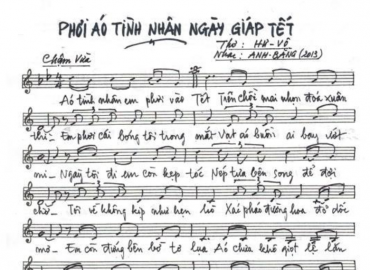 PHƠI ÁO TÌNH NHÂN NGÀY GIÁP TẾT
Thơ: HƯ-VÔ
Chậm Vừa
Nhạc: ANH-BẰNG (2013)
Áo tình nhân em phơi vào Tết Trên chồi mai nhọn đoá xuân
thì - Em phơi cái bóng tôi trong mắt - Vạt ai buồn ai bay
mi - Ngày tôi đi em còn kẹp tóc Nép tựa bên song để đợi
chờ - Tôi về không kịp như hẹn Xác pháo đường hoa đỏ dốc
mơ - Em còn đứng bên bờ tơ lụa Áo chưa khô giọt lệ lần